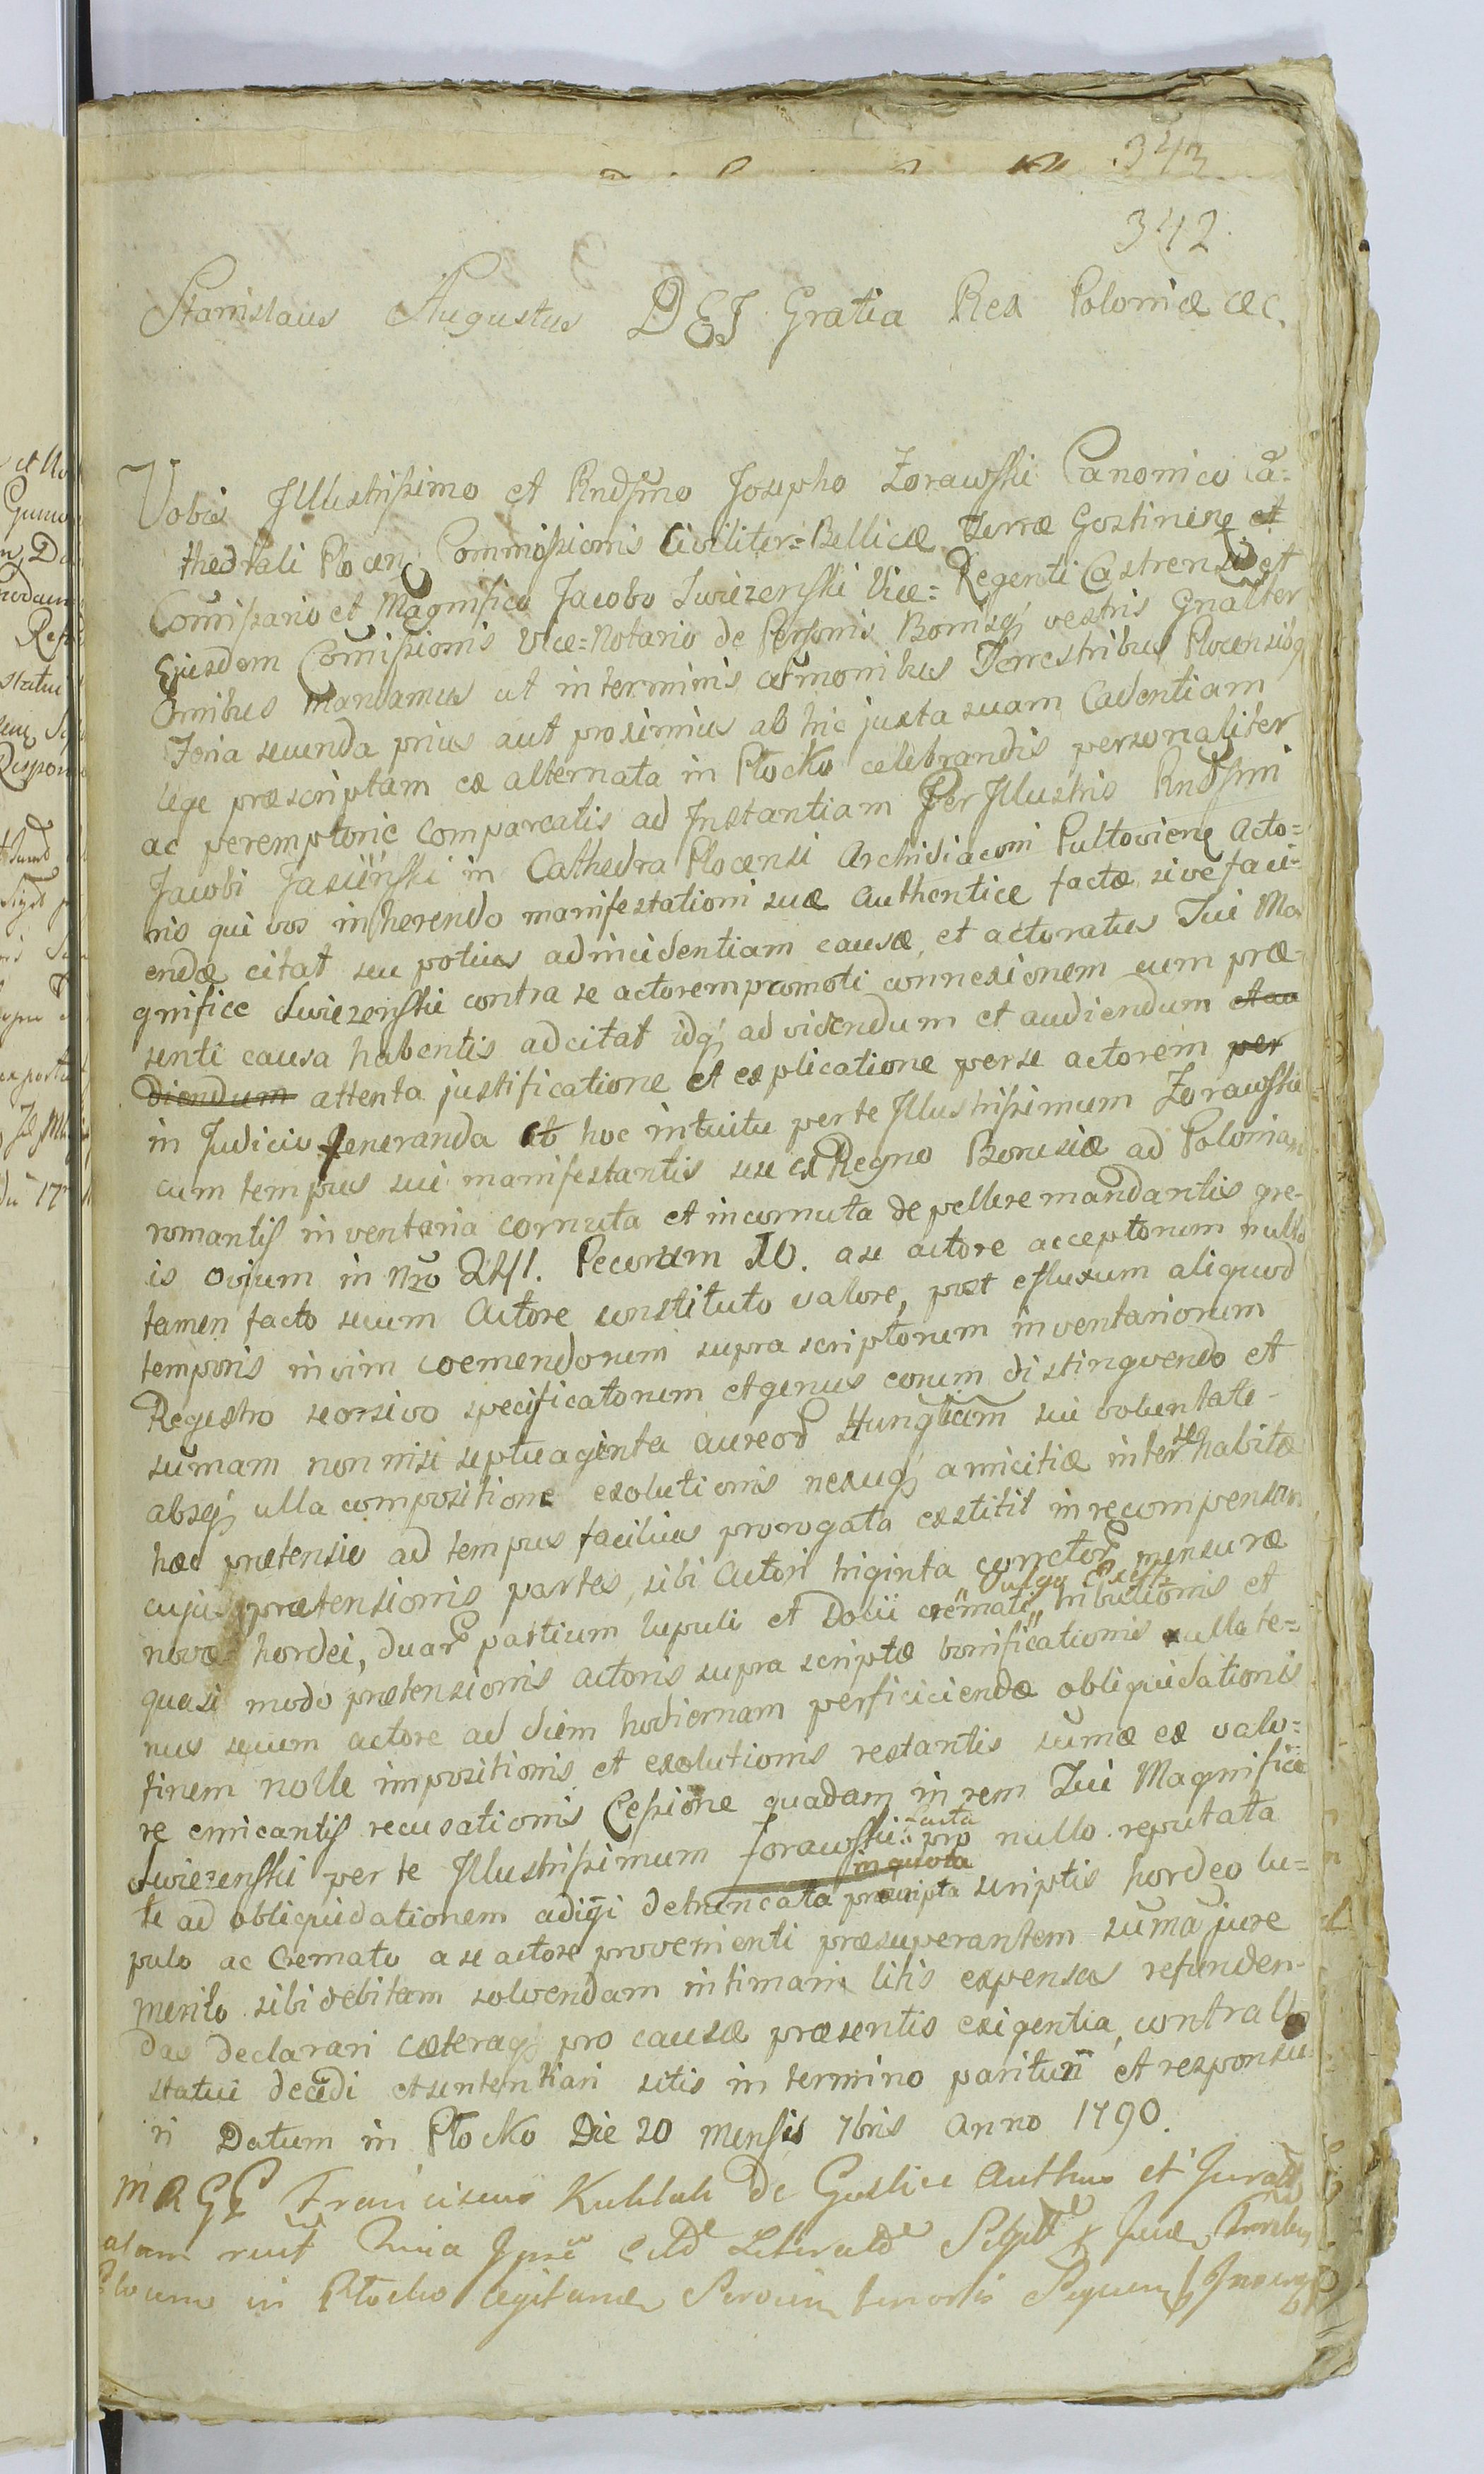 343
342
Stanislaus Augustus DEJ Gratia Rex Poloniæ æc.
Vobis Jllustrissimo et Rndssmo Josepho Zorawski Canonico Ca=
thedrali Plocen Commissionis Civiliter=Bellicæ Terræ Gostinens et
Comissario et Magnifico Jacobo Swiezenski Vice=Regenti Castrensi et
Ejusdem Comissionis Vice=Notario de Personis Bonisq vestris Gnalter
Omnibus Mandamus ut in terminis Terrestribus Plocensibq
Feria secunda prius aut proximius ab hic juxta suam Cadentiam
lege præscriptam ex alternata in Płocko celebrandis personaliter
ac peremptorie Compareatis ad Jnstantiam Per Jllustris Rndssmi
Jacobi Jasiński in Cathedra Plocensi Archidiaconi Pultoviens Acto=
ris qui vos inherendo manifestationi suæ Authentice factæ sive faci=
endæ citat seu potius ad incidentiam causæ, et actoratus Tui Ma
gnifice Swiezenski contra se actorem promoti connexionem cum præ=
senti causa habentis adcitat idq ad videndum et audiendum et au
diendum attenta justificatione et explicatione per se actorem per
in Judicio feneranda et hoc intuitu per te Jllustrissimum Zorawski
cum tempus sui manifestantis sese ex Regno Borusiæ ad Poloniam
romantis inventaria cornuta et incornuta depellere mandantis gre=
is ovium in Nro 241. Pecorum 10. a se actore acceptorum nullo
tamen facto secum Actore constituto valore, post efluxum aliquod
temporis in vim coemendorum supra scriptorum inventariorum
Registro seorsivo specificatorum et genus eorum distingvendo et
sumam non nisi septuaginta aureor Hunglicam sui voluntate
absq ulla compositione exolutionis nexuq amicitiæ inter se habitæ
hæc prætensio ad tempus facilius prorogata exstitit in recompensam
cujus prætensionis partes, sibi Actori triginta corretor mensuræ
novæ hordei, duar partium lupuli et Dolii cremati tributionis et
quasi modo prætensionis actoris supra scriptæ bonificationis nulla te=
nus secum actore ad diem hodiernam perficiciendæ obliquidationis
finem nolle impositionis et exolutionis restantis sumæ ex valo=
re emicantis recusationis Cessione quadam in rem Tui Magnifice
Swiezenski per te Jllustrissimum Zorawski facta pro nullo reputata
te ad obliquidationem adigi detruncata in quota præscripta scriptis hordeo lu=
pulo ac Cremato a se actore provenienti præsuperantem suma jure
merito sibi debitam solvendam intimari litis expensas refunden=
das declarari cæteraq pro causæ præsentis exigentia, contra
statui decidi et sententiari sitis in termino parituri et responsu
ri Datum in Płocko Die 20 Mensis 7bris Anno 1790.
Franciscus
in Płocko